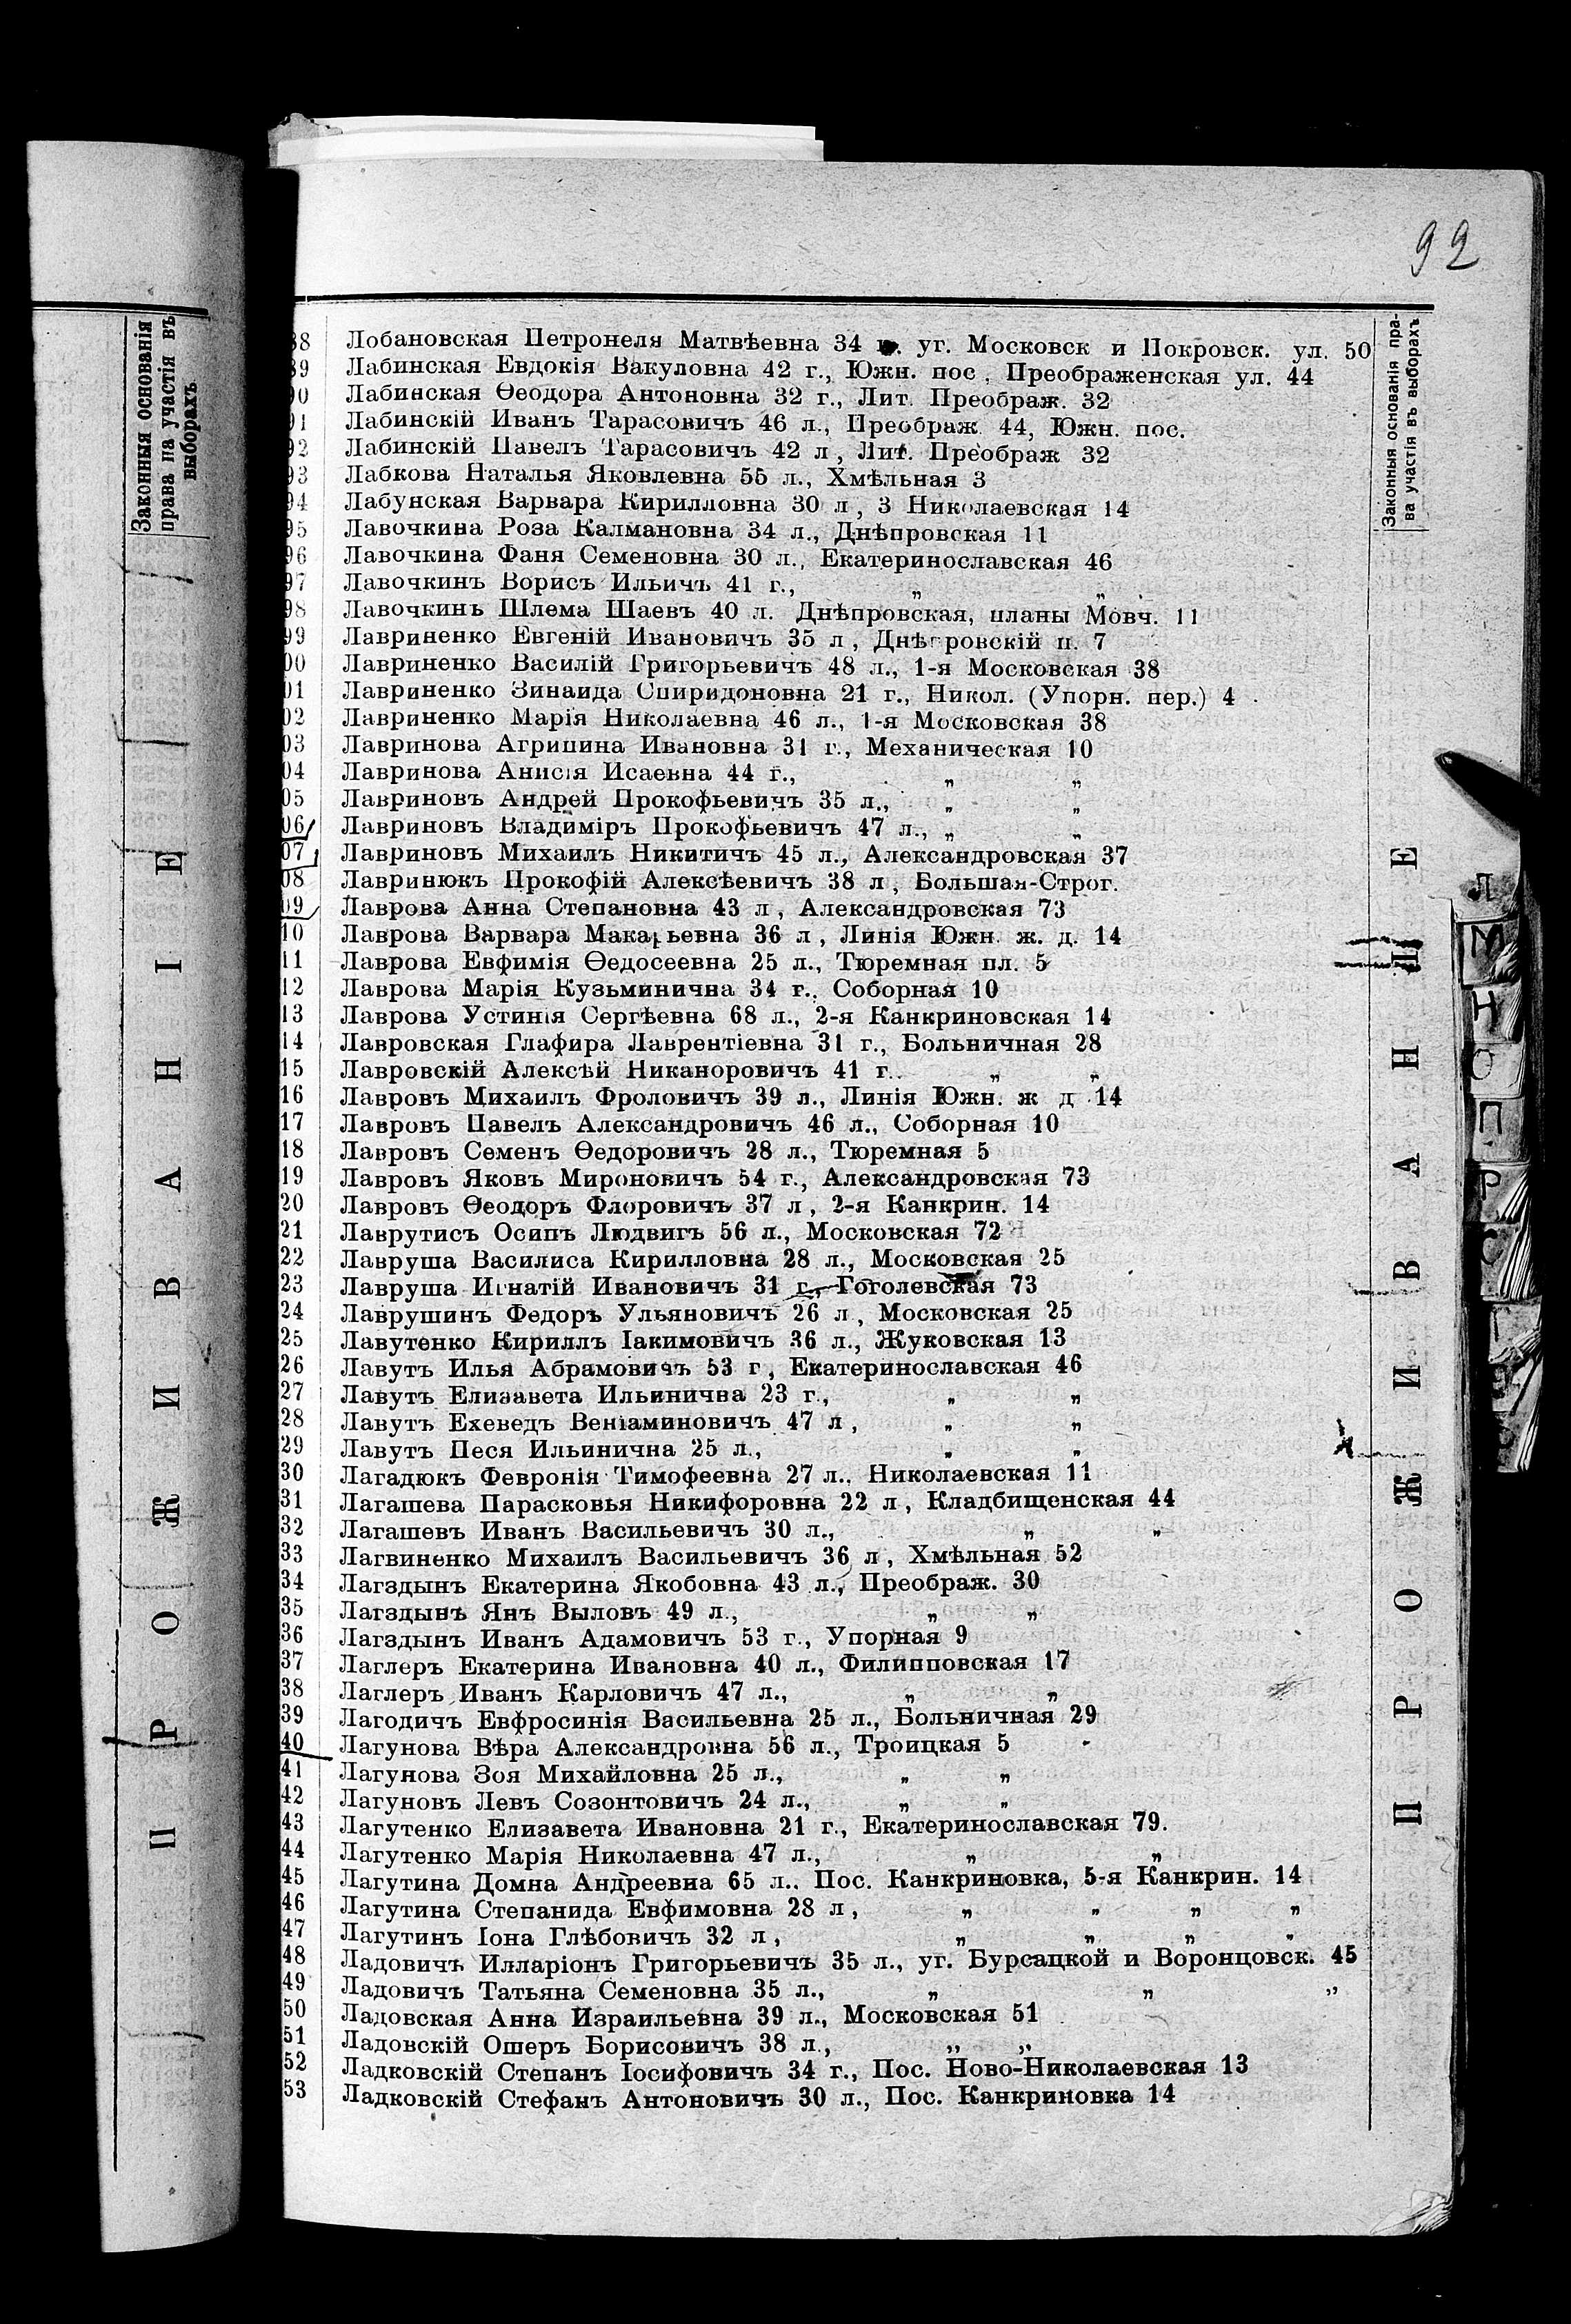 92
Законныя основанія
права на участія въ
выборахъ
ПРОЖИВАНІЕ
88 Лобановская Петронеля Матвѣевна 34 уг. Московск и Покровск. ул. 50
89 Лабинская Евдокія Вакуловна 42 г., Южн. пос, Преображенская ул. 44
90 Лабинская Ѳеодора Антоновна 32 г., Лит. Преображ. 32
91 Лабинскій Иванъ Тарасовичъ 46 л., Преображ. 44, Южн. пос.
92 Лабинскій Павелъ Тарасовичъ 42 л, Лит. Преображ 32
93 Лабкова Наталья Яковлевна 55 л., Хмѣльная 3
94 Лабунская Варвара Кирилловна 30 л, 3 Николаевская 14
95 Лавочкина Роза Калмановна 34 л., Днѣпровская 11
96 Лавочкина Фаня Семеновна 30 л., Екатеринославская 46
97 Лавочкинъ Борисъ Ильичъ 41 г., „ „
98 Лавочкинъ Шлема Шаевъ 40 л. Днѣпровская, планы Мовч. 11
99 Лавриненко Евгеній Ивановичъ 35 л, Днѣпровскій п. 7
00 Лавриненко Василій Григорьевичъ 48 л., 1-я Московская 38
01 Лавриненко Зинаида Спиридоновна 21 г., Никол. (Упорн. пер.) 4
02 Лавриненко Марія Николаевна 46 л., 1-я Московская 38
03 Лавринова Агрипина Ивановна 31 г., Механическая 10
04 Лавринова Анисія Исаевна 44 г., „ „
05 Лавриновъ Андрей Прокофьевичъ 35 л., „ „
06 Лавриновъ Владиміръ Прокофьевичъ 47 л., „ „
07 Лавриновъ Михаилъ Никитичъ 45 л., Александровская 37
08 Лавринюкъ Прокофій Алексѣевичъ 38 л, Большая-Строг.
09 Лаврова Анна Степановна 43 л, Александровская 73
10 Лаврова Варвара Макарьевна 36 л, Линія Южн. ж. д. 14
11 Лаврова Евфимія Ѳедосеевна 25 л., Тюремная пл. 5
12 Лаврова Марія Кузьминична 34 г., Соборная 10
13 Лаврова Устинія Сергѣевна 68 л., 2-я Канкриновская 14
14 Лавровская Глафира Лаврентіевна 31 г., Больничная 28
15 Лавровскій Алексѣй Никаноровичъ 41 г.. „ „
16 Лавровъ Михаилъ Фроловичъ 39 л., Линія Южн. ж д 14
17 Лавровъ Павелъ Александровичъ 46 л., Соборная 10
18 Лавровъ Семенъ Ѳедоровичъ 28 л., Тюремная 5
19 Лавровъ Яковъ Мироновичъ 54 г., Александровская 73
20 Лавровъ Ѳеодоръ Флоровичъ 37 л, 2-я Канкрин. 14
21 Лаврутисъ Осипъ Людвигъ 56 л., Московская 72
22 Лавруша Василиса Кирилловна 28 л., Московская 25
23 Лавруша Игнатій Ивановичъ 31 г., Гоголевская 73
24 Лаврушинъ Федоръ Ульяновичъ 26 л, Московская 25
25 Лавутенко Кириллъ Іакимовичъ 36 л., Жуковская 13
26 Лавутъ Илья Абрамовичъ 53 г, Екатеринославская 46
27 Лавутъ Елизавета Ильинична 23 г., „ „
28 Лавутъ Ехеведъ Веніаминовичъ 47 л, „ „
29 Лавутъ Песя Ильинична 25 л., „ „
30 Лагадюкъ Февронія Тимофеевна 27 л.. Николаевская 11
31 Лагашева Парасковья Никифоровна 22 л, Кладбищенская 44
32 Лагашевъ Иванъ Васильевичъ 30 л., „ „
33 Лагвиненко Михаилъ Васильевичъ 36 л, Хмѣльная 52
34 Лагздынъ Екатерина Якобовна 43 л., Преображ. 30
35 Лагздынъ Янъ Выловъ 49 л., „ „
36 Лагздынъ Иванъ Адамовичъ 53 г., Упорная 9
37 Лаглеръ Екатерина Ивановна 40 л., Филипповская 17
38 Лаглеръ Иванъ Карловичъ 47 л., „ „
39 Лагодичъ Евфросинія Васильевна 25 л., Больничная 29
40 Лагунова Вѣра Александровна 56 л., Троицкая 5
41 Лагунова Зоя Михайловна 25 л., „ „
42 Лагуновъ Левъ Созонтовичъ 24 л., „ „
43 Лагутенко Елизавета Ивановна 21 г., Екатеринославская 79.
44 Лагутенко Марія Николаевна 47 л., „ „
45 Лагутина Домна Андреевна 65 л.. Пос. Канкриновка, 5-я Канкрин. 14
46 Лагутина Степанида Евфимовна 28 л, „ „ „ „
47 Лагутинъ Іона Глѣбовичъ 32 л, „ „ „ „
48 Ладовичъ Илларіонъ Григорьевичъ 35 л., уг. Бурсацкой и Воронцовск. 45
49 Ладовичъ Татьяна Семеновна 35 л., „ „ „
50 Ладовская Анна Израильевна 39 л., Московская 51
51 Ладовскій Ошеръ Борисовичъ 38 л., „ „
52 Ладковскій Степанъ Іосифовичъ 34 г., Пос. Ново-Николаевская 13
53 Ладковскій Стефанъ Антоновичъ 30 л., Пос. Канкриновка 14
Законныя основанія пра-
ва участія въ выборахъ
ПРОЖИВАНІЕ
Л
М
Н
О
П
Р
С
Т